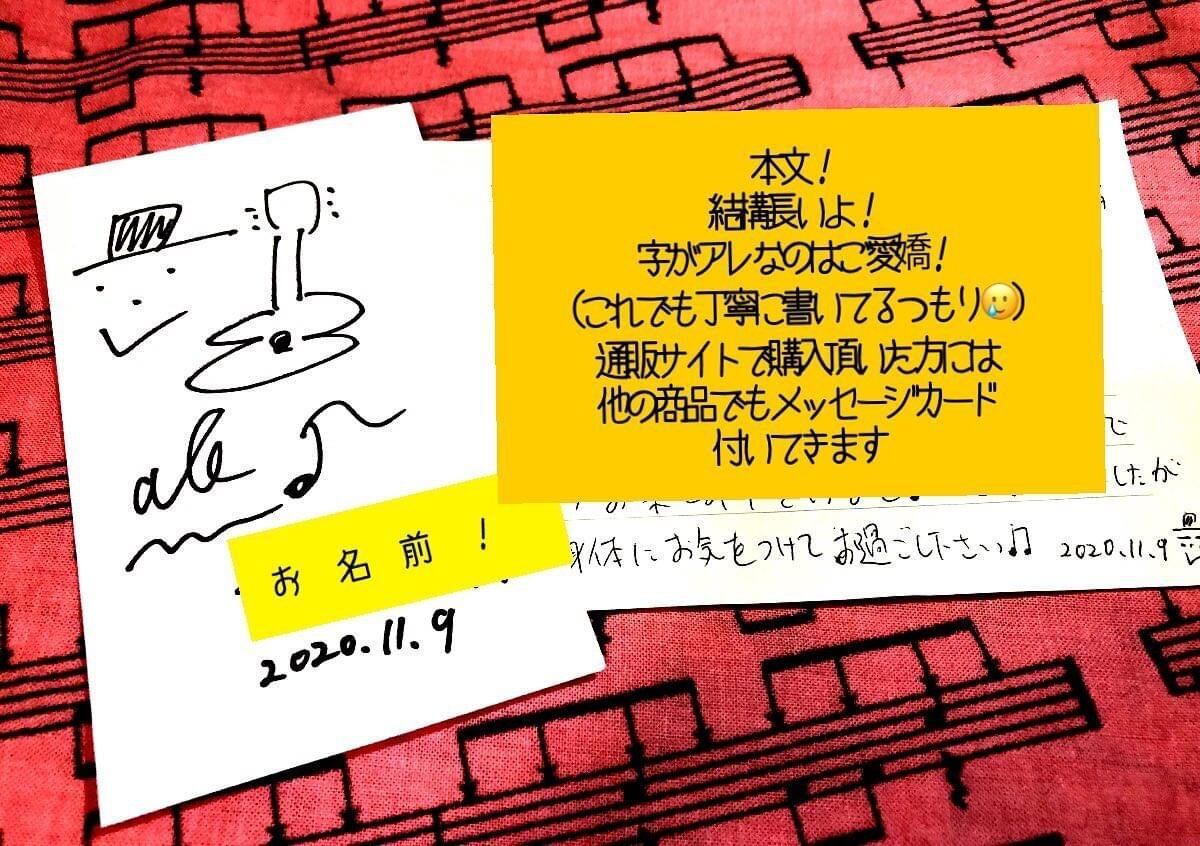 本文！
結構長いよ！
字がアレなのはご愛嬌！
（これでも丁寧に書いてるつもり🥲）
通販サイトで購入頂いた方には
他の商品でもメッセージカード
付いてきます
お名前！
2020.11.9
で
したが
身体にお気をつけてお過ごし下さい♫ 2020.11.9